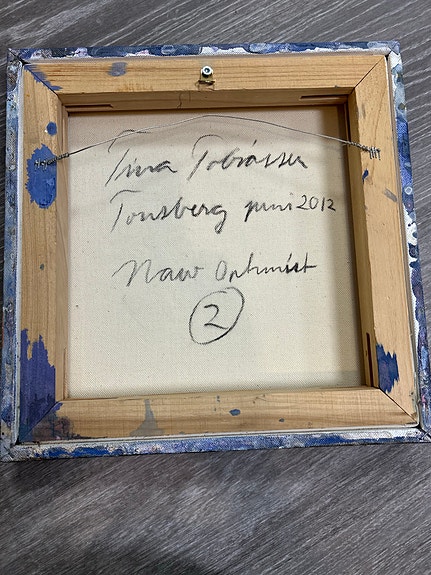 Tina Tobiassen
Tønsberg juni 2012
Naiv Optimist
2